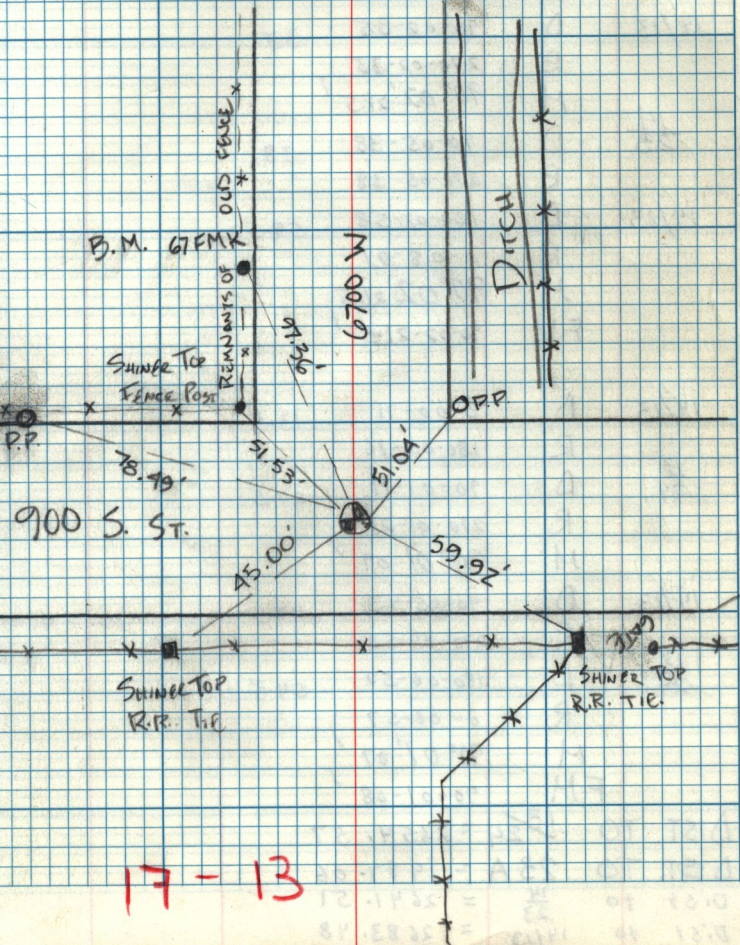 REMNANTS OF OLD FENCE
B.M. 67FMK
6700 W
DITCH
97.36'
SHINER TOP
FENCE POST
P.P.
P.P.
78.49'
51.53'
51.04'
900 S. ST.
45.00'
59.92'
GATE
SHINER TOP
R.R. TIE
SHINER TOP
R.R. TIE.
17-13